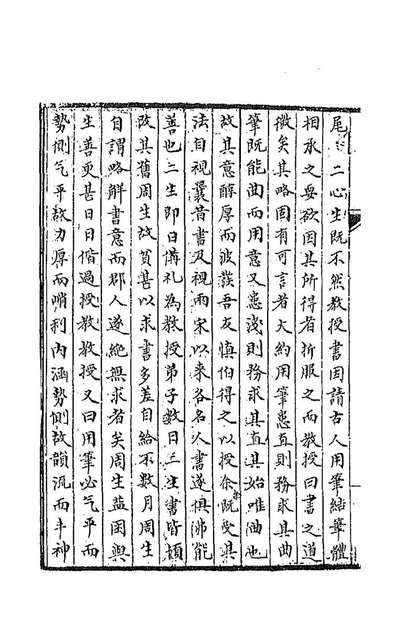 尾二心生既不然教授書因請古人用筆結筆體
相承之要欲因其所得者折服之而教授曰書之道
微矣其略固有可言者大約用筆患直則務求其曲
筆既能曲而用意又患淺則務求其直其始唯油也
故其意醇厚而波發吾友慎伯得之以授余既受其
法自視曩昔書及視兩宋以來各名人書遂俱沸能
善也二生即日備禮為教授弟子數日二生書皆頓
改其舊周生故貧甚以求書多差自給不數月周生
自謂略解書意而郡人遂絕無求者矣周生益困與
生善更甚日日偕過授教教授又曰用筆必氣平而
勢側气平故力厚而嘴利內涵勢側故韻流而丰神